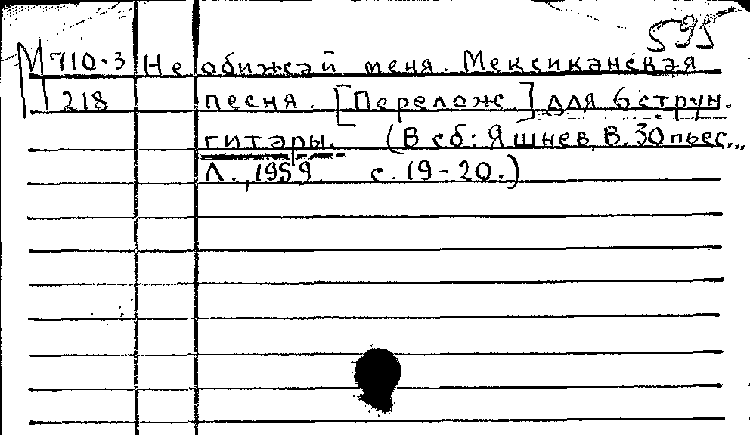 595
М 710-3 Не обижай меня. Мексиканская
218 песня. [Перелож.] для 6 струн.
гитары. (В сб: Яшнев, В. 30 пьес...
Л., 1959 с. 19-20.)